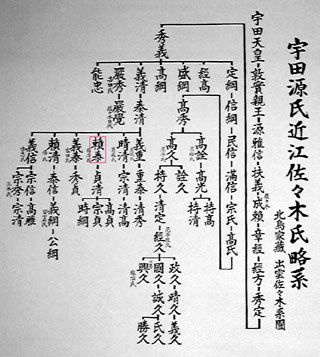 宇田源氏近江佐々木氏略系
北島家蔵 出雲佐々木系圖
宇田天皇-敦實親王-源雅信-扶義-成頼-章経-経方-秀定
秀義
定綱-信綱-氏信-満信-宗氏-高氏
経高
盛綱
高綱
義清-泰清
厳秀-厳覺
能忠
高秀
高詮-高光
持高
持清
詮久
高久
持久-清定-経久
政久-晴久-義久
國久-誠久-氏久
興久
勝久
義重-重泰-清秀
時清-宗清-清高
頼泰
貞清
高貞
宗貞
時綱
義泰-秀貞
頼清-泰信-義綱-公綱
義信-宗信-高雅
宗秀-宗清